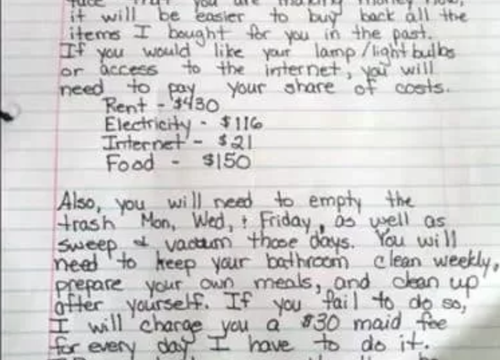 that you are making money now,
it will be easier to buy back all the
items I bought for you in the past.
If you would like your lamp/lightbulbs
or access to the internet, you will
need to pay your share of costs.
Rent - $430
Electricity - $116
Internet - $21
Food - $150
Also, you will need to empty the
trash Mon, Wed, + Friday, as well as
sweep & vacuum those days. You will
need to keep your bathroom clean weekly,
prepare your own meals, and clean up
after yourself. If you fail to do so,
I will charge you a $30 maid fee
for every day I have to do it.